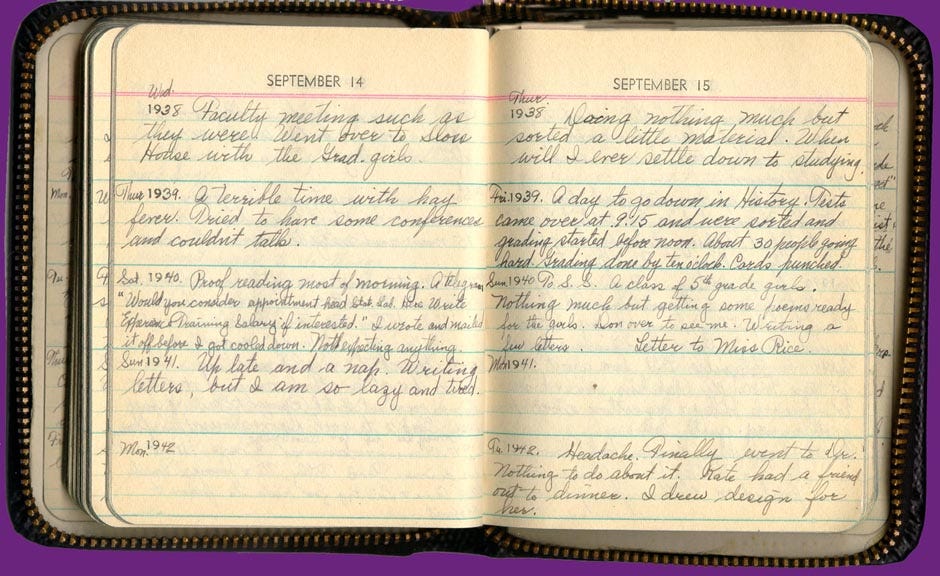 SEPTEMBER 14
Wed.
1938 Faculty meeting such as
they were. Went over to Slow
House with the Grad. girls.
Thur 1939. A terrible time with hay
fever. Tried to have some conferences
and couldn't talk.
Sat. 1940. Proof reading most of morning. A telegram
"Would you consider appointment head Stat. Lab. Write
Experience Training Salary if interested." I wrote and mailed
it off before I got cooled down. Not expecting anything.
Sun 1941. Up late and a nap. Writing
letters, but I am so lazy and tired.
Mon. 1942
SEPTEMBER 15
Thur.
1938 Doing nothing much but
sorted a little material. When
will I ever settle down to studying.
Fri. 1939. A day to go down in History. Tests
came over at 9:15 and were sorted and
grading started before noon. About 30 people going
hard. Grading done by ten o'clock. Cards punched.
Sun 1940 To S. S. A class of 5th grade girls.
Nothing much but getting some poems ready
for the girls. Don over to see me. Writing a
few letters Letter to Miss Rice.
Mon 1941.
Tu. 1942. Headache. Finally went to Dr.
Nothing to do about it. Kate had a friend
out to dinner. I drew design for
her.